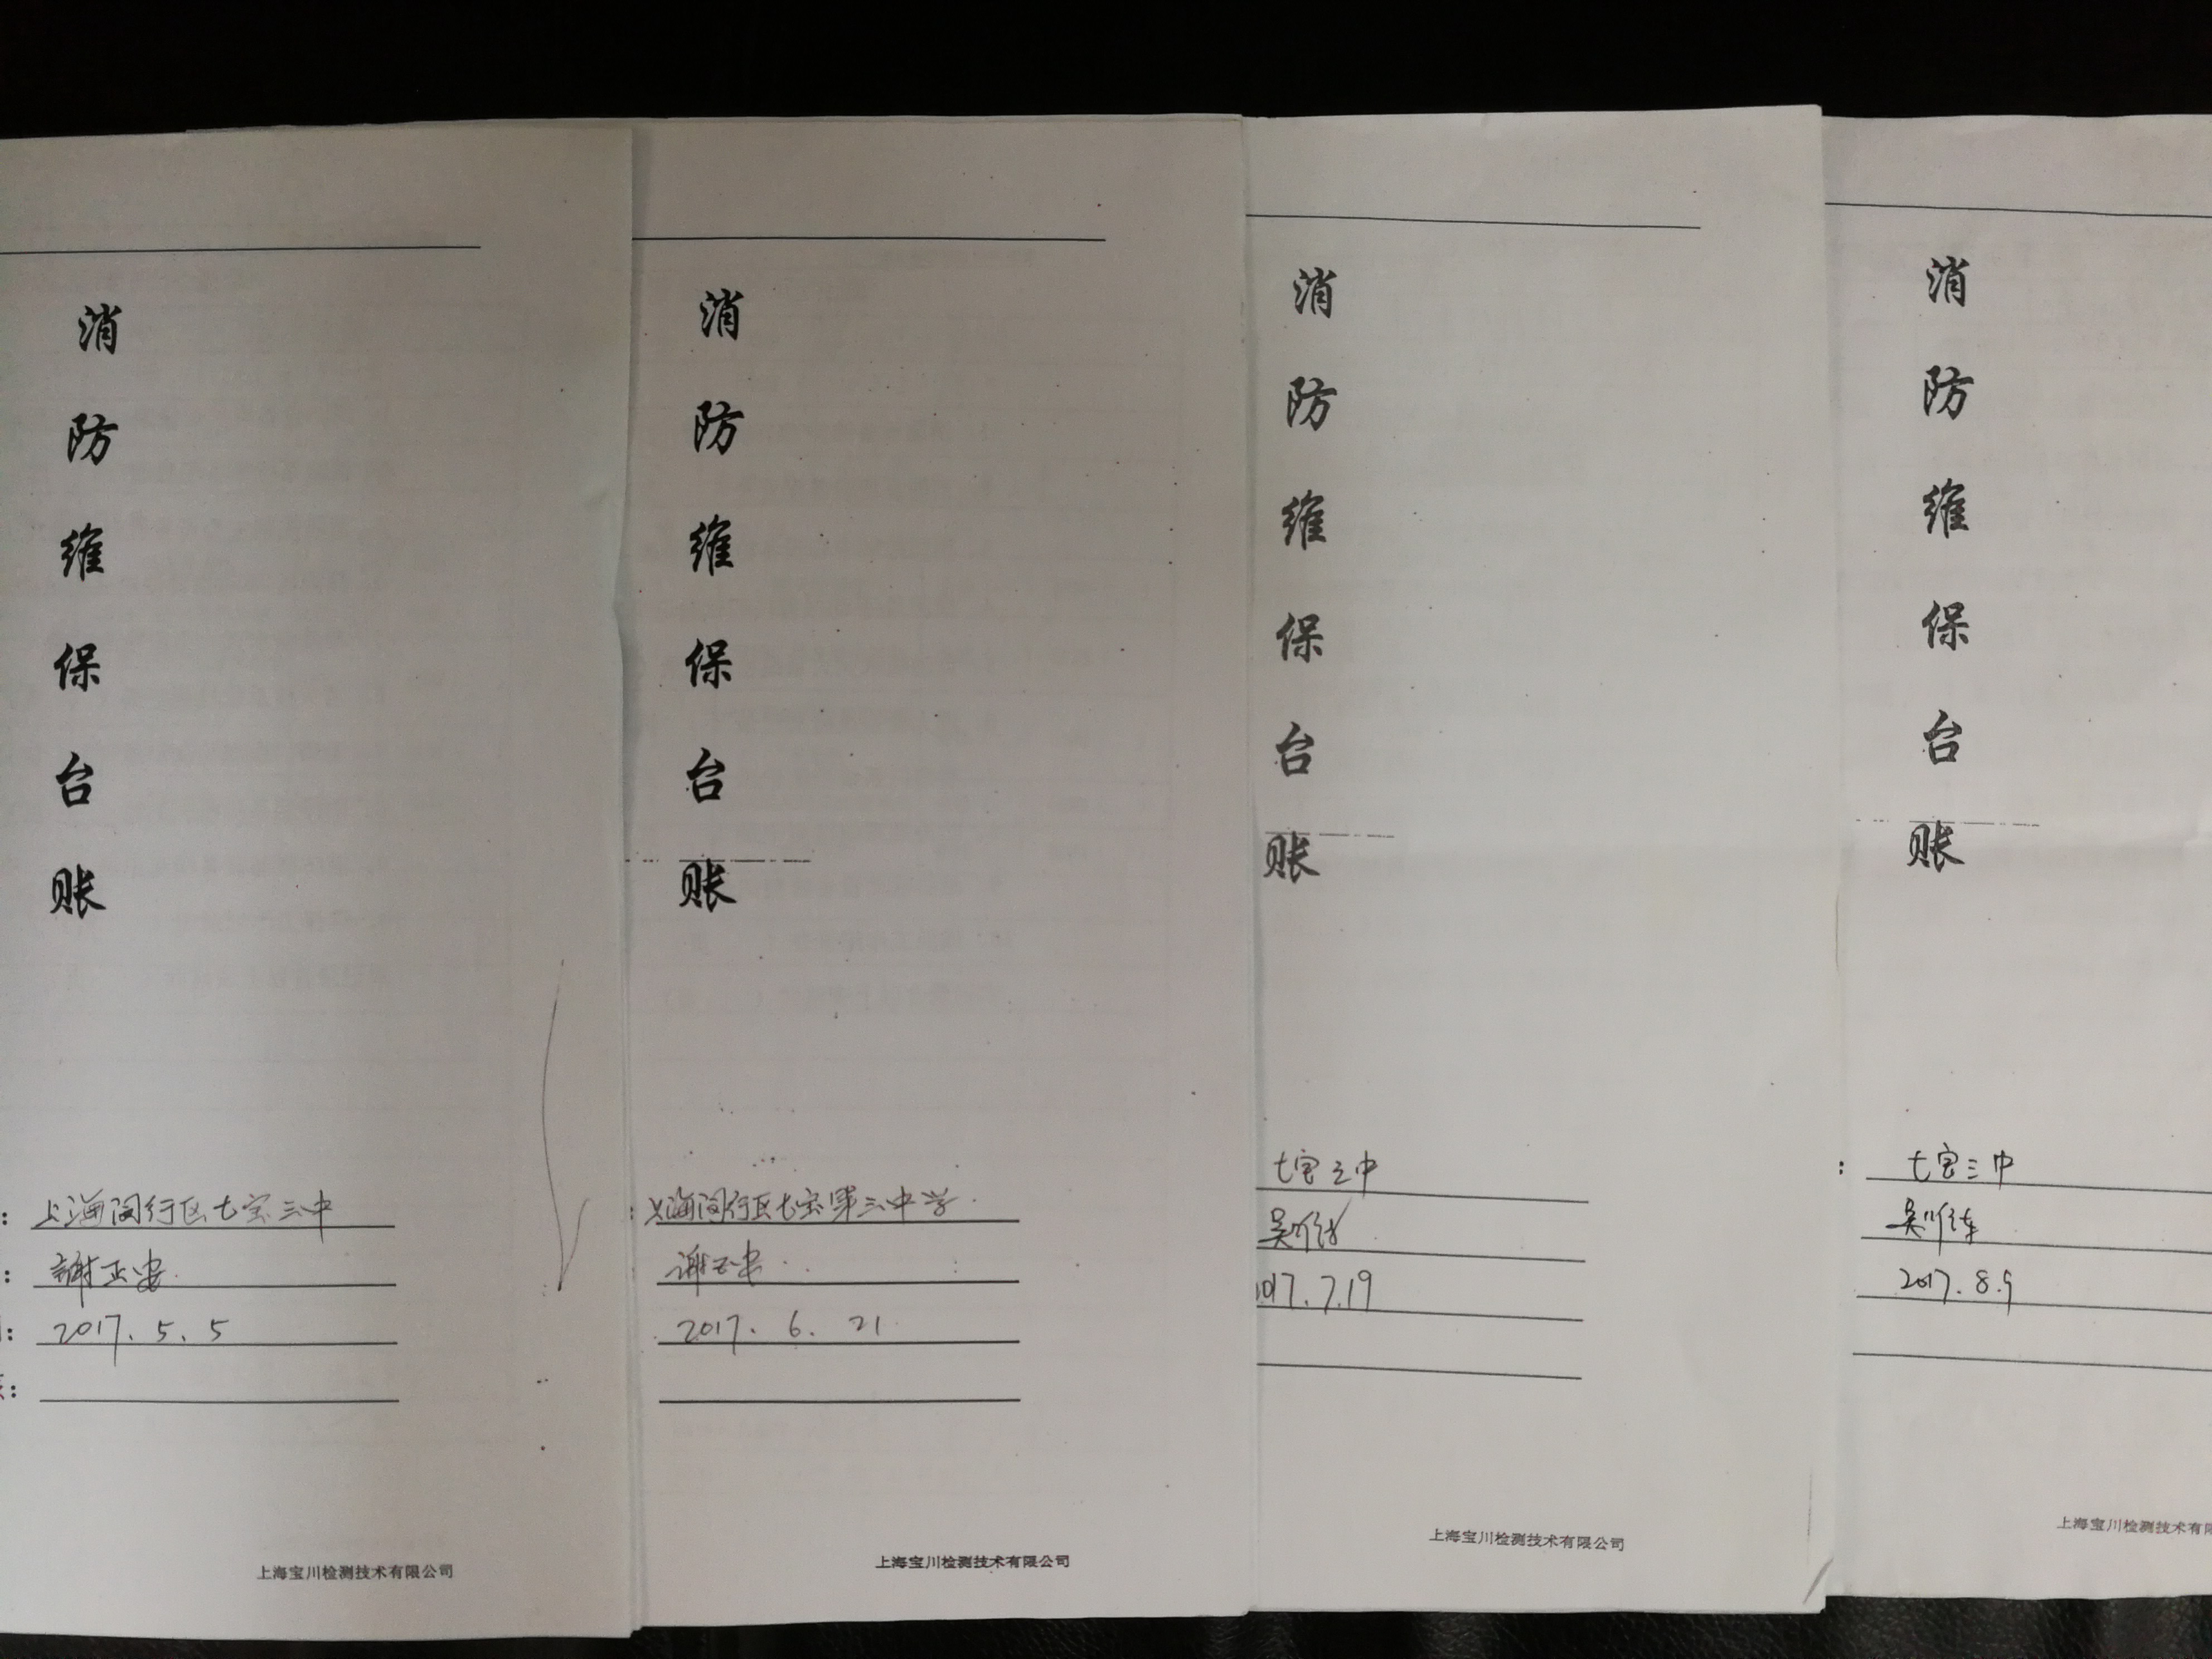 消
防
维
保
台
账
: 上海闵行区七宝三中
: 谢正安
: 2017.5.5
:
上海宝川检测技术有限公司
消
防
维
保
台
账
: 上海闵行区七宝第三中学
谢正安
2017.6.21
上海宝川检测技术有限公司
消
防
维
保
台
账
七宝三中
017.7.19
上海宝川检测技术有限公司
消
防
维
保
台
账
: 七宝三中
2017.8.9
上海宝川检测技术有